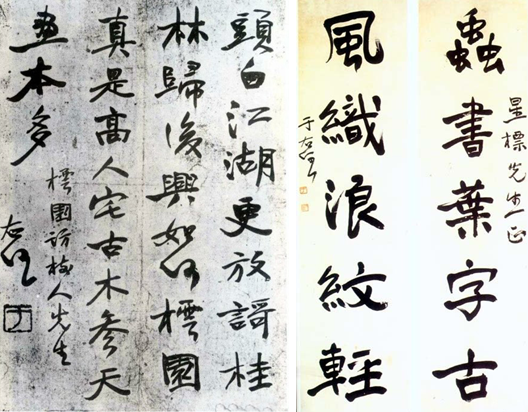 頭白江湖更放謌桂
林歸後興如何樗園
真是高人宅古木參天
畫本多
樗園訪人先生
右任
星標先生正
蟲書葉字古
風織浪紋輕
于右任